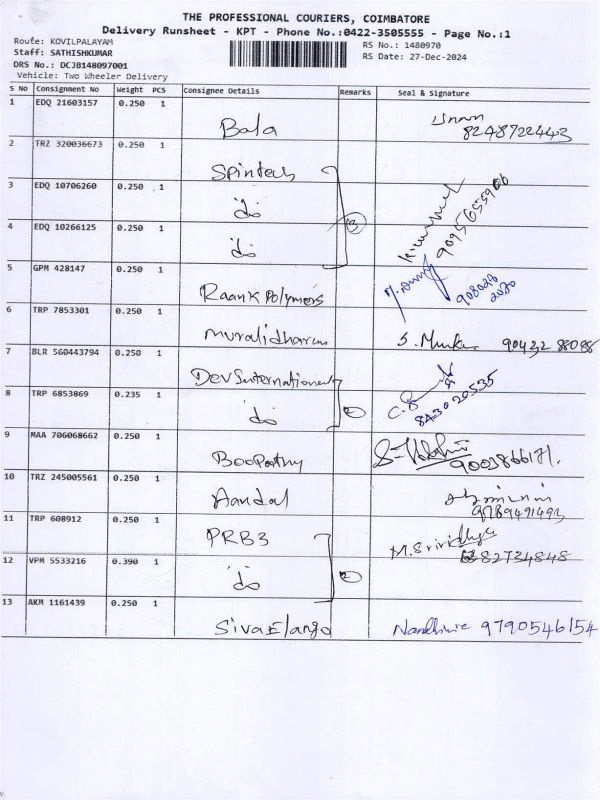 THE PROFESSIONAL COURIERS, COIMBATORE
Delivery Runsheet - KPT - Phone No.:0422-3505555 - Page No.:1
Route: KOVILPALAYAM
Staff: SATHISHKUMAR
DRS No.: DCJB148097001
Vehicle: Two Wheeler Delivery
RS No.: 1480970
RS Date: 27-Dec-2024
S No Consignment No Weight PCS Consignee Details Remarks Seal & Signature
1 EDQ 21603157 0.250 1 Bala 8248722443
2 TRZ 320036673 0.250 1 Spintech
3 EDQ 10706260 0.250 1 do 3
4 EDQ 10266125 0.250 1 do 9095655906
5 GPM 428147 0.250 1 Raank Polymers 908020 2020
6 TRP 7853301 0.250 1 Muralidharan 90432 88088
7 BLR 560443794 0.250 1 Dev International
8 TRP 6853869 0.235 1 do 2 843020535
9 MAA 706068662 0.250 1 Boopathy 9003866171.
10 TRZ 245005561 0.250 1 Aandal 9789491493
11 TRP 608912 0.250 1 PRB3 M.Srividhya
12 VPM 5533216 0.390 1 do 2 82734848
13 AKM 1161439 0.250 1 Siva Elango Nandhinie 9790546154